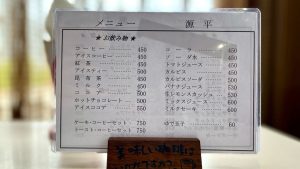 メニュー 源平
★ お飲み物 ★
コーヒー 450
アイスコーヒー 450
紅茶 450
アイスティー 450
昆布茶 450
ミルク 450
ココア 500
ホットチョコレート 500
アイスココア 550
ケーキ・コーヒーセット 750
トースト・コーヒーセット 750
コーラ 450
ソーダ水 450
トマトジュース 450
カルピス 450
カルピスソーダ 500
バナナジュース 500
生レモンスカッシュ 550
ミックスジュース 550
ミルクセーキ 550
ゆで玉子 60
美味しい珈琲は